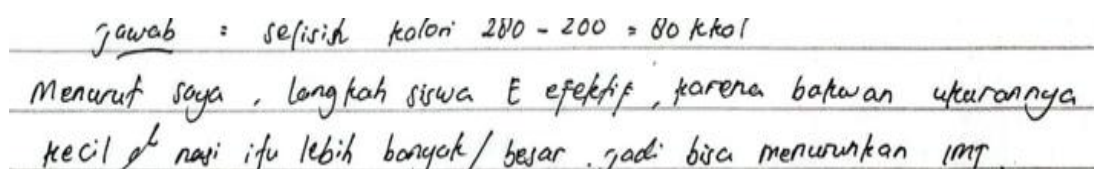 Jawab : selisih kalori 280 - 200 = 80 kkal
Menurut saya, langkah siswa E efektif, karena bakwan ukurannya
kecil & nasi itu lebih banyak/besar. jadi bisa menurunkan IMT.